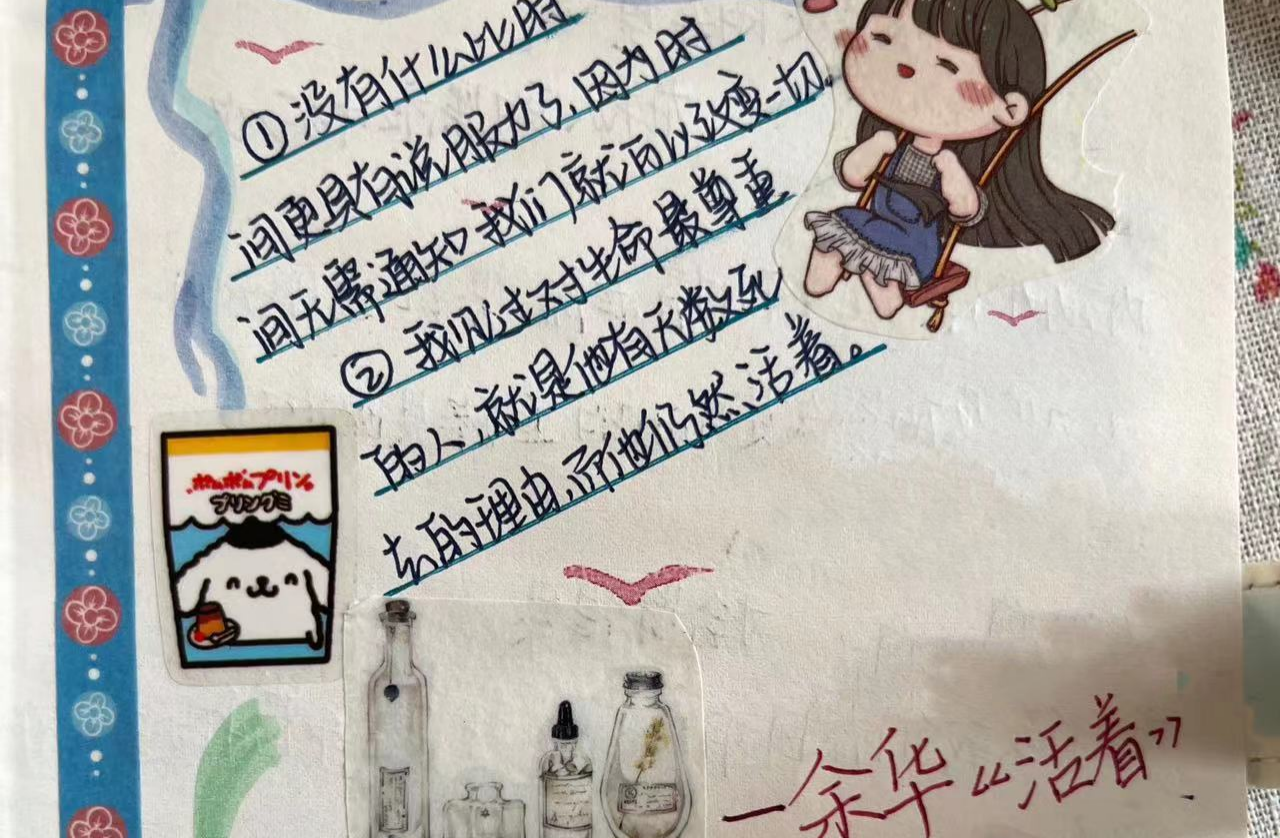 ①没有什么比时
间更具有说服力了，因为时
间无需通知我们就可以改变一切。
②我见过对生命最尊重
的人，就是他有无数死
去的理由，而他仍然活着。
ポムポムプリン
プリングミ
—余华“活着”